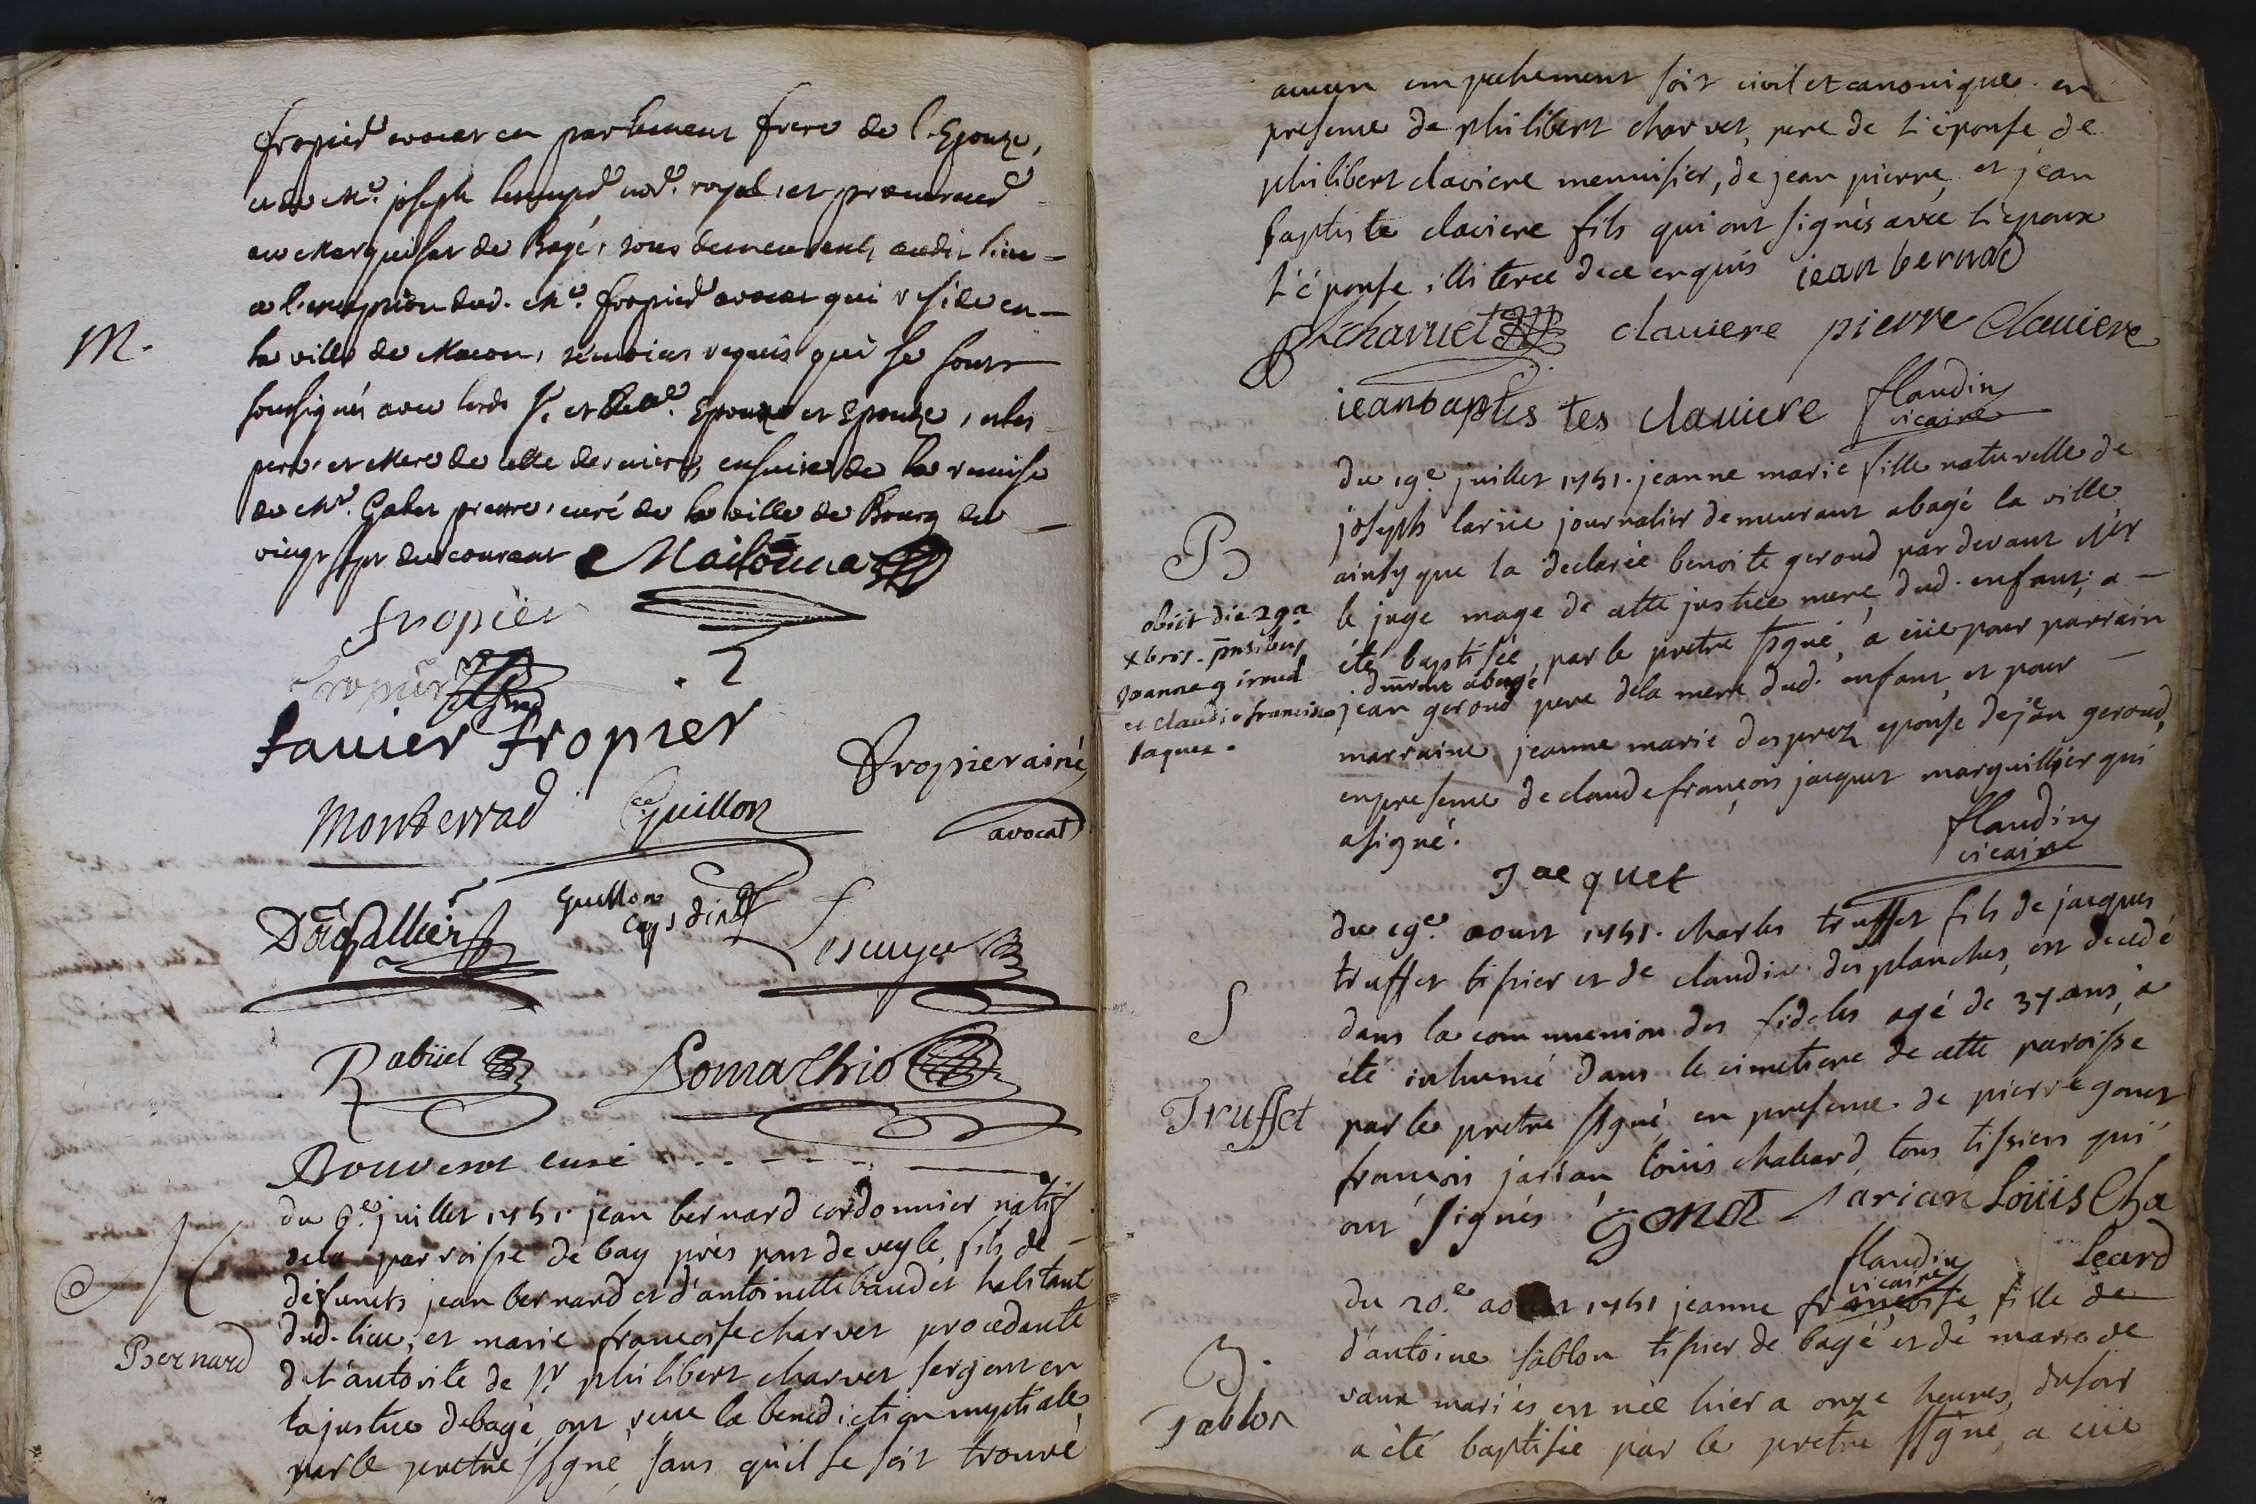 fropier avocat en parlement frere de l'Epouze,
et de Me. joseph lescuyer not. royal, et procureur
au Marquisat de Bagé, tous demeurants audit lieu
a l'exception dud. Me. fropier avocat qui reside en
M.
la ville de Macon, temoins requis qui se sont
soussignés avec lesds Sr. et delle. Epoux et Epouze, et les
pere et Mere de cette derniere, ensuite de la remise
de Mr. Gabet pretre, curé de la ville de Bourg du
vingt sept du courant
fropier
fropier
Xauier fropier
fropier ainé
avocat
Monterrad Guillon
Guillon
Lescuyer
Rabuel Lomachio
Bouvesot curé
du 9e. juillet 1751. jean bernard cordonnier natif
de la parroisse de bay près pont de veyle, fils de
défuncts jean bernard et d'antoinette baudet habitant
Bernard
dud. lieu, et marie françoise charvet procedante
de l'autorité de Sr. philibert charvet sergent en
la justice de bagé, ont reçu la benediction nuptiale,
par le pretre ssigné, sans qu'il se soit trouvé
aucun empechement soit civil et canonique. en
presence de philibert charvet, pere de l'épouse de
philibert claviere menuisier, de jean pierre, et jean
baptiste claviere fils qui ont signés avec l'epoux
l'épouse illiterée de ce enquis jean bernad
p charuet clauiere pierre Clauiere
iean baptis tes clauiere flandin
vicaire
du 19e. juillet 1751. jeanne marie fille naturelle de
joseph larue journalier demeurant a bagé la ville
B
ainsy que la declarée benoite geroud par devant Mr
le juge mage de cette justice mere dud. enfant, a
été baptisée, par le pretre ssigné, a eüe pour parrain
dmrant a bagé
jean geroud pere de la mere dud. enfant, et pour
marraine jeanne marie desprez epouse de jean geroud,
en presence de claude françois jacquet marguillier qui
a signé.
obiit die 29a
xbris. pnsibus
Joanne giroud
et claudio francisco
Jaquet.
Jacquet
flandin
vicaire
du 19e. aoust 1751. charles truffet fils de jacques
truffet tissier et de claudine desplanches, est decedé
S
dans la communion des fideles agé de 37 ans, a
été inhumé dans le cimetiere de cette paroisse
Truffet
par le pretre ssigné en presence de pierre gonet
françois jarian, louis chaleard, tous tissiers qui
ont signés gonet Jarian Loüis Cha
leard
flandin
vicaire
du 20.e aoust 1751 jeanne françoise, fille de
B.
d'antoine sablon tissier de bagé et de marie de
vaux mariés est née hier a onze heures, du soir
Sablon
a été baptisée par le pretre ssigné, a eüe